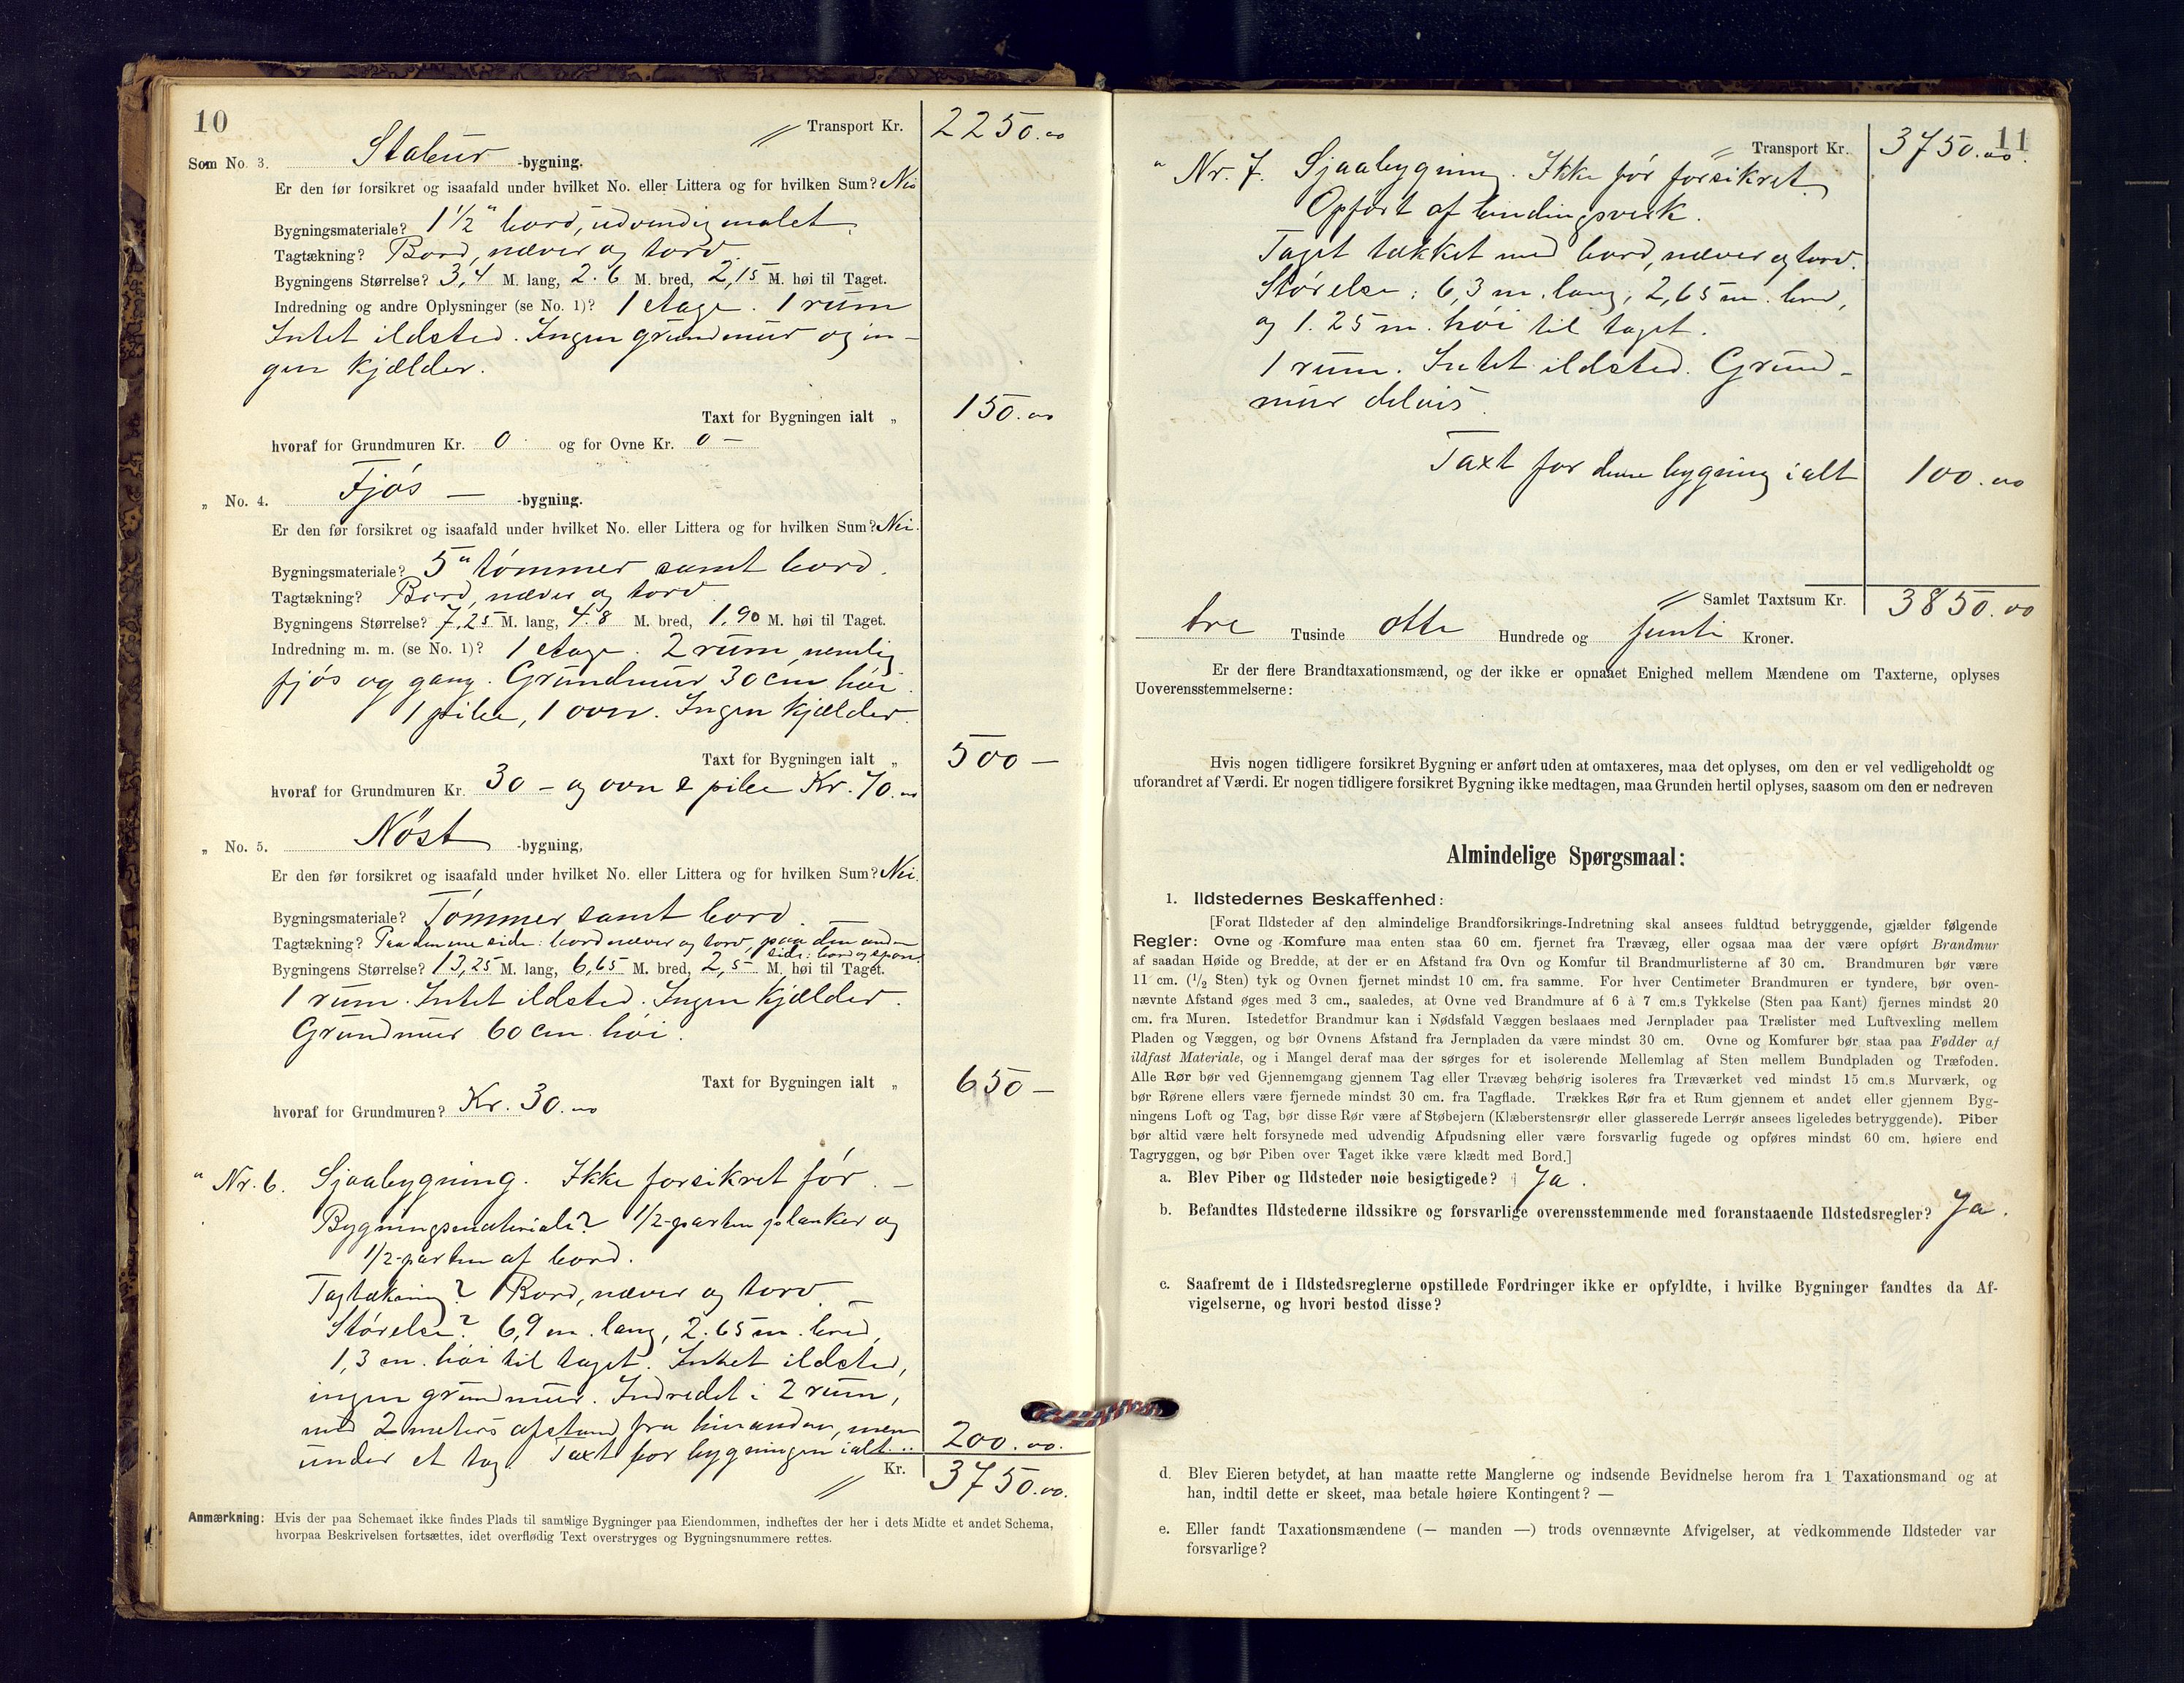 10
Transport Kr. 2250.00
Som No. 3. Stabur -bygning.
Er den før forsikret og isaafald under hvilket No. eller Littera og for hvilken Sum? Nei
Bygningsmateriale? 1 1/2" bord, udvendig malet.
Tagtækning? Bord, næver og torv.
Bygningens Størrelse? 3,4 M. lang, 2.6 M. bred, 2,15 M. høi til Taget.
Indredning og andre Oplysninger (se No. 1)? 1 etage. 1 rum
Intet ildsted. Ingen grundmur og in-
gen kjælder.
Taxt for Bygningen ialt „ 150.00
hvoraf for Grundmuren Kr. 0 og for Ovne Kr. 0 —
„ No. 4. Fjøs — -bygning.
Er den før forsikret og isaafald under hvilket No. eller Littera og for hvilken Sum? Nei.
Bygningsmateriale? 5" tømmer samt bord.
Tagtækning? Bord, næver og torv
Bygningens Størrelse? 7,25 M. lang, 4.8 M. bred, 1,90 M. høi til Taget.
Indredning m. m. (se No. 1)? 1 etage. 2 rum, nemlig
fjøs og gang. Grundmur 30 cm høi.
1 pibe, 1 ovn. Ingen kjælder.
Taxt for Bygningen ialt „ 500 —
hvoraf for Grundmuren Kr. 30 — og ovn & pibe Kr. 70.00
„ No. 5. Nøst -bygning,
Er den før forsikret og isaafald under hvilket No. eller Littera og for hvilken Sum? Nei.
Bygningsmateriale? Tømmer samt bord.
Tagtækning? Paa den ene side: bord næver og torv, paa den anden
side: bord og spon.
Bygningens Størrelse? 13,25 M. lang, 6,65 M. bred, 2,5 M. høi til Taget.
1 rum. Intet ildsted. Ingen kjælder.
Grundmur 60 cm. høi.
Taxt for Bygningen ialt „ 650 —
hvoraf for Grundmuren? Kr. 30.00
" Nr. 6. Sjaabygning. Ikke forsikret før. —
Bygningsmateriale? 1/2-parten planker og
1/2-parten af bord.
Tagtækning? Bord, næver og torv. —
Størelse? 6,9 m. lang, 2.65 m. bred,
1,3 m. høi til taget. Intet ildsted,
ingen grundmur. Indredet i 2 rum,
med 2 meters afstand fra hinanden, men
under et tag. Taxt for bygningen ialt.. 200.00.
Kr. 3750.00.
Anmærkning: Hvis der paa Schemaet ikke findes Plads til samtlige Bygninger paa Eiendommen, indheftes der her i dets Midte et andet Schema,
hvorpaa Beskrivelsen fortsættes, idet overflødig Text overstryges og Bygningsnummere rettes.
11
Transport Kr. 3750.00.
" Nr. 7. Sjaabygning. Ikke før forsikret
Opført af bindingsverk.
Taget tækket med bord, næver og torv.
Størelse: 6,3 m. lang, 2,65 m. bred,
og 1.25 m. høi til taget.
1 rum. Intet ildsted. Grund-
mur delvis.
Taxt for denne bygning ialt 100.00
Samlet Taxtsum Kr. 3850.00
tre Tusinde otte Hundrede og femti Kroner.
Er der flere Brandtaxationsmænd, og der ikke er opnaaet Enighed mellem Mændene om Taxterne, oplyses
Uoverensstemmelserne:
Hvis nogen tidligere forsikret Bygning er anført uden at omtaxeres, maa det oplyses, om den er vel vedligeholdt og
uforandret af Værdi. Er nogen tidligere forsikret Bygning ikke medtagen, maa Grunden hertil oplyses, saasom om den er nedreven
Almindelige Spørgsmaal:
1. Ildstedernes Beskaffenhed:
[Forat Ildsteder af den almindelige Brandforsikrings-Indretning skal ansees fuldtud betryggende, gjælder følgende
Regler: Ovne og Komfure maa enten staa 60 cm. fjernet fra Trævæg, eller ogsaa maa der være opført Brandmur
af saadan Høide og Bredde, at der er en Afstand fra Ovn og Komfur til Brandmurlisterne af 30 cm. Brandmuren bør være
11 cm. (1/2 Sten) tyk og Ovnen fjernet mindst 10 cm. fra samme. For hver Centimeter Brandmuren er tyndere, bør oven-
nævnte Afstand øges med 3 cm., saaledes, at Ovne ved Brandmure af 6 à 7 cm.s Tykkelse (Sten paa Kant) fjernes mindst 20
cm. fra Muren. Istedetfor Brandmur kan i Nødsfald Væggen beslaaes med Jernplader paa Trælister med Luftvexling mellem
Pladen og Væggen, og bør Ovnens Afstand fra Jernpladen da være mindst 30 cm. Ovne og Komfurer bør staa paa Fødder af
ildfast Materiale, og i Mangel deraf maa der sørges for et isolerende Mellemlag af Sten mellem Bundpladen og Træfoden.
Alle Rør bør ved Gjennemgang gjennem Tag eller Trævæg behørig isoleres fra Træværket ved mindst 15 cm.s Murværk, og
bør Rørene ellers være fjernede mindst 30 cm. fra Tagflade. Trækkes Rør fra et Rum gjennem et andet eller gjennem Byg-
ningens Loft og Tag, bør disse Rør være af Støbejern (Klæberstensrør eller glasserede Lerrør ansees ligeledes betryggende). Piber
bør altid være helt forsynede med udvendig Afpudsning eller være forsvarlig fugede og opføres mindst 60 cm. høiere end
Tagryggen, og bør Piben over Taget ikke være klædt med Bord.]
a. Blev Piber og Ildsteder nøie besigtigede? Ja.
b. Befandtes Ildstederne ildssikre og forsvarlige overensstemmende med foranstaaende Ildstedsregler? Ja.
c. Saafremt de i Ildstedsreglerne opstillede Fordringer ikke er opfyldte, i hvilke Bygninger fandtes da Af-
vigelserne, og hvori bestod disse?
d. Blev Eieren betydet, at han maatte rette Manglerne og indsende Bevidnelse herom fra 1 Taxationsmand og at
han, indtil dette er skeet, maa betale høiere Kontingent? —
e. Eller fandt Taxationsmændene (— manden —) trods ovennævnte Afvigelser, at vedkommende Ildsteder var
forsvarlige?